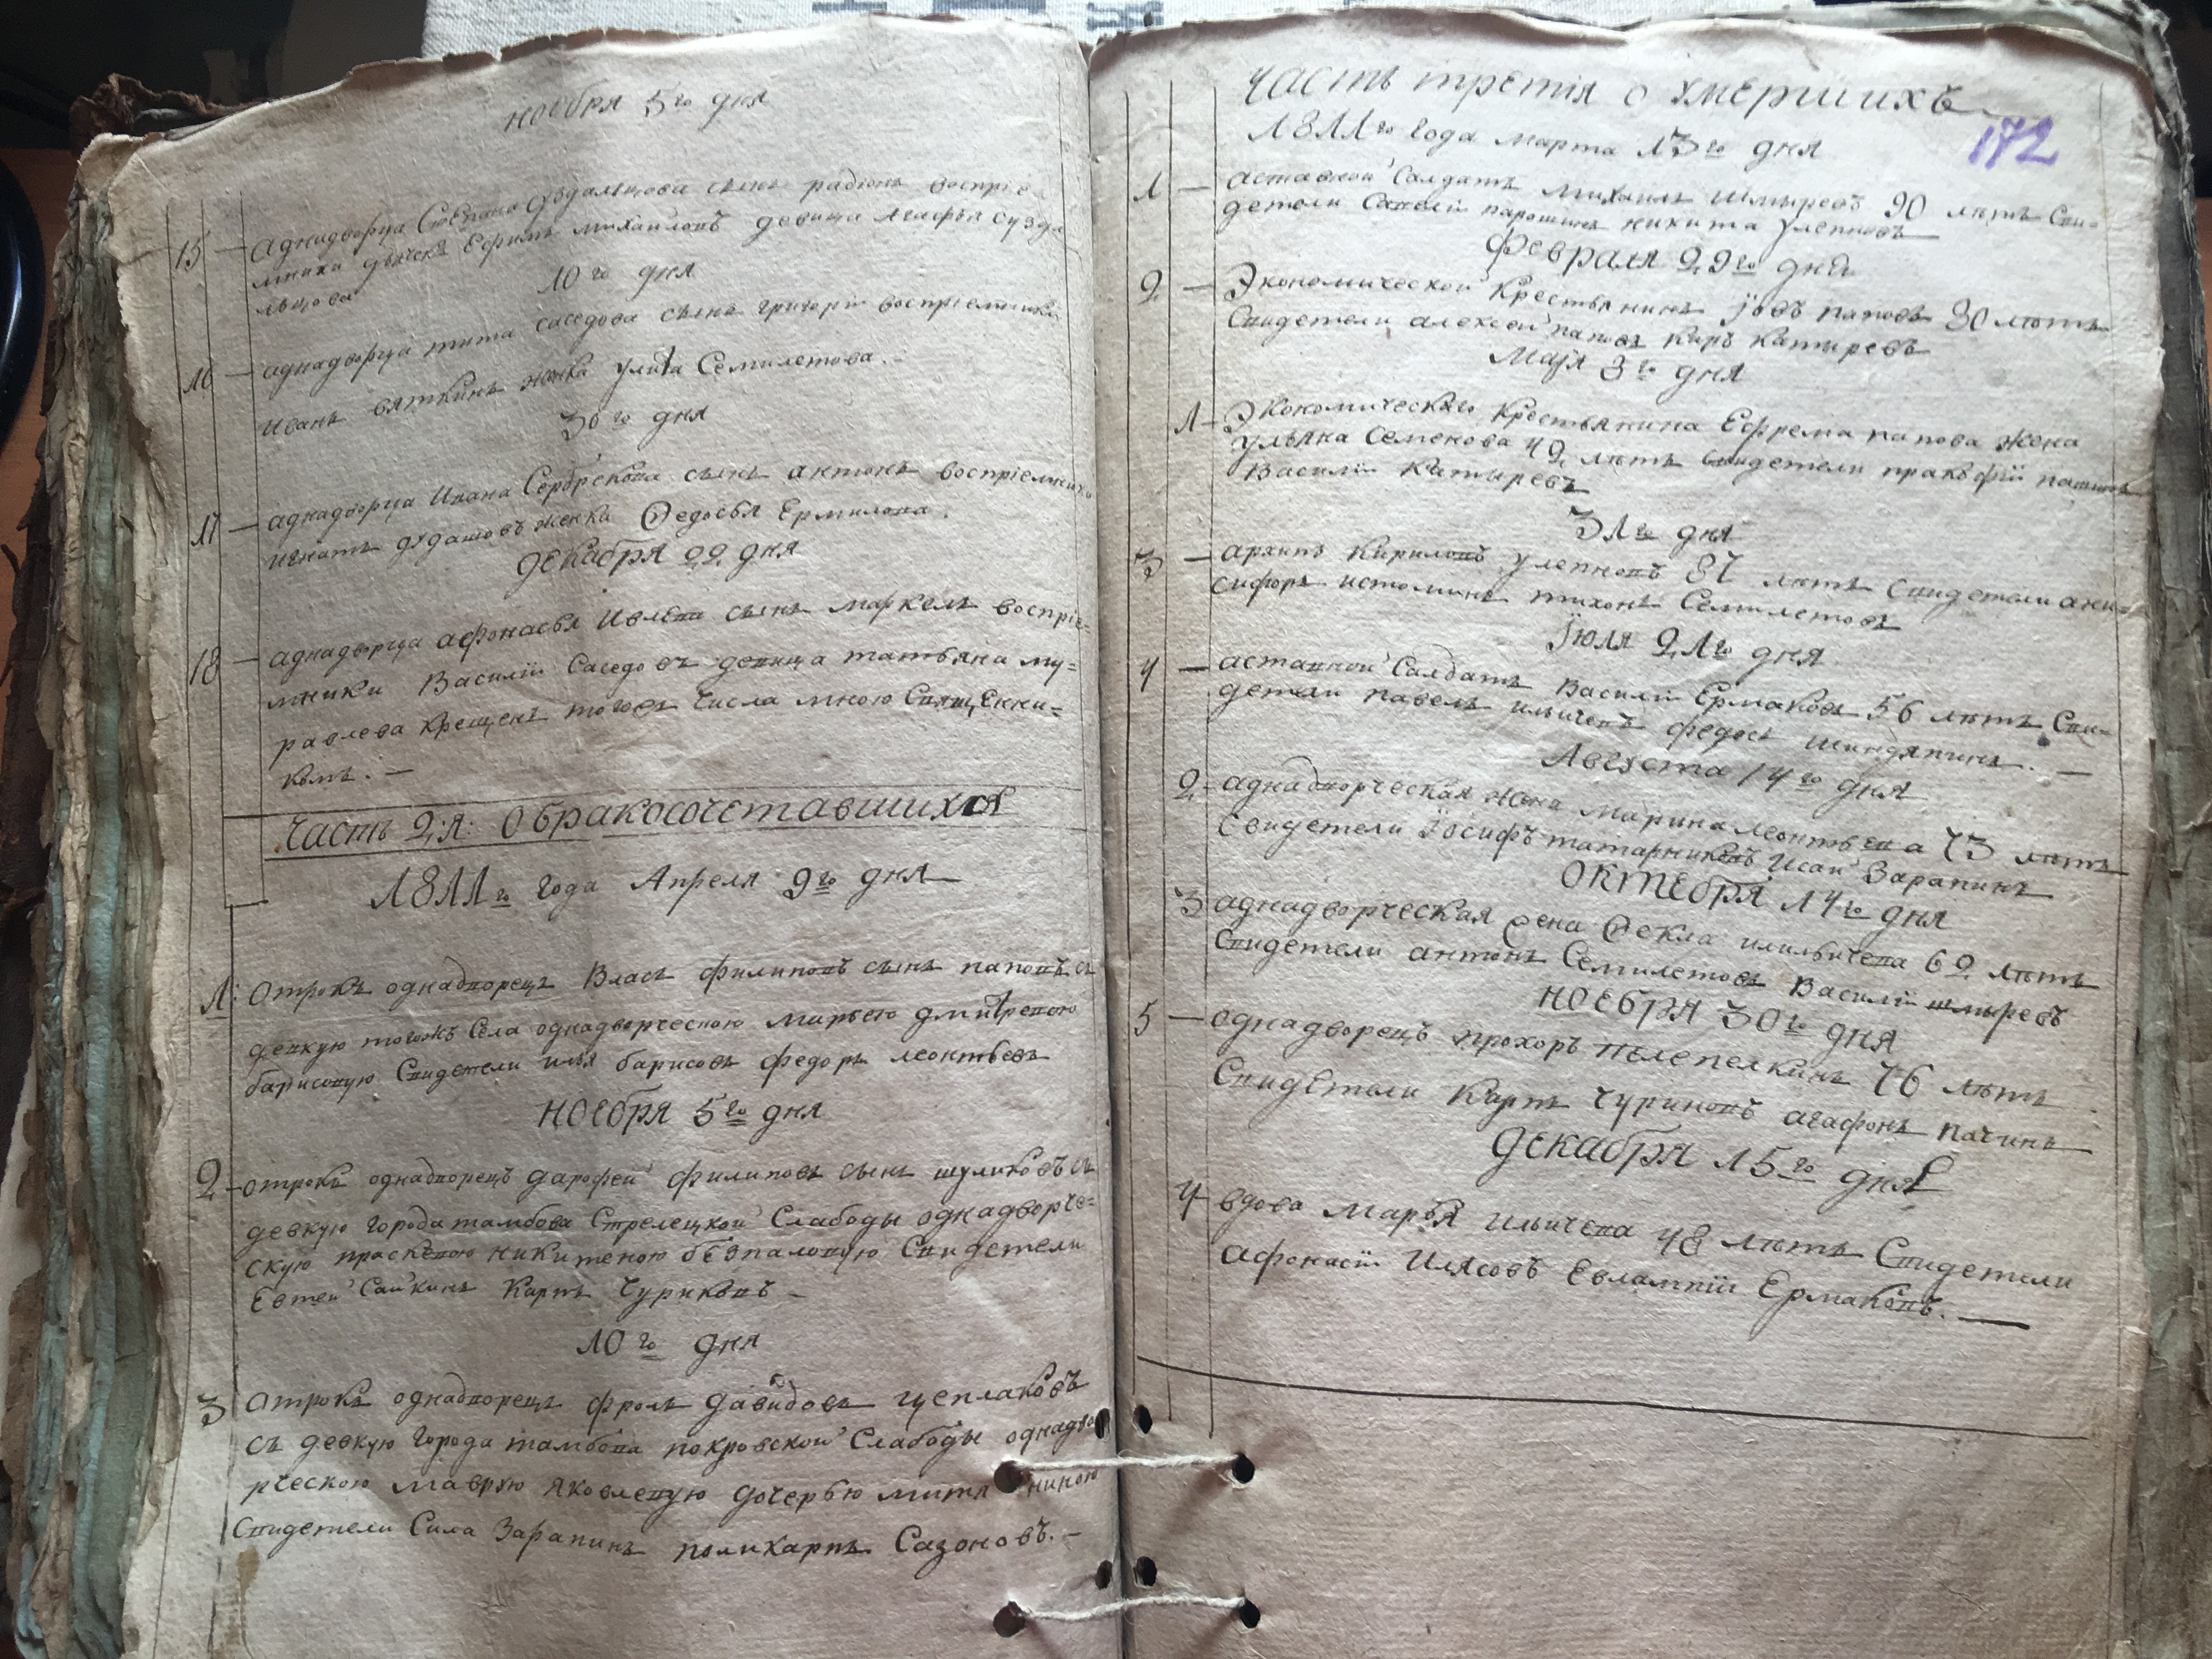 ноебря 5го дня
15 — аднадворца Степана Суздальцова сынъ радіонъ воспріе-
мники дьячекъ Ефимъ михаиловъ девица Агафья сузда
льцова
10го дня
16 — аднадворца тита саседова сынъ григорій воспріемники
иванъ вяткинъ женка улита Семилетова. —
30го дня
17 — аднадворца Ивана Сербрекова сынъ антонъ воспріемники
игнатъ дудашовъ женка Ѳедосья Ермилова.
декабря 22 дня
18 — аднадворца афонасья Ивлева сынъ маркелъ воспріе=
мники Василій Саседовъ девица татьяна му=
равлева крещенъ тогожъ числа мною Священни=
комъ. —
Часть 2:я: о бракосочетавшихся
1811го года Апреля 9го дня
1: Отрокъ однадворецъ Власъ филиповъ сынъ паповъ съ
девкую тогожъ Села однадворческою марьею дмитревою
барисовую Свидетели илья барисовъ федоръ леонтьевъ
ноебря 5го дня
2 — отрокъ однадворецъ дарофей филиповъ сынъ шуликовъ съ
девкую города тамбова Стрелецкой Слабоды однадворче=
скую прасковою никитеною безпаловую Свидетели
Евтей Сайкинъ Карпъ Чуриковъ —
10го дня
3 Отрокъ однадворецъ фролъ давидовъ цеплаковъ
съ девкую города тамбова покровской Слабоды однадво
рческою маврую яковлевую дочерью митя ниною
Свидетели Сила Зарапинъ поликарпъ Сазоновъ. —
часть третія о умершихъ
172
1811го года марта 13го дня
1 — аставной Салдатъ михаилъ шмыревъ 90 летъ Сви-
детели Савелій парошинъ никита улепновъ
февраля 29го дня
2 — Экономической Крестьянинъ Іовъ паповъ 80 летъ
Свидетели алексей паповъ Киръ Катыревъ
Маія 3го дня
1 — Экономическаго Крестьянина Ефрема папова жена
ульяна семенова 42 летъ свидетели пракофій
Василій Катыревъ
31го дня
3 — архипъ Кириловъ улепновъ 87 летъ Свидетели ани-
сифоръ истоминъ тихонъ Семилетовъ
Іюля 21го дня
4 — аставной Салдатъ Василій Ермаковъ 56 летъ Сви=
детели павелъ ильичевъ федосъ шиндяпинъ. —
Августа 14го дня
2 — аднадворческая жена марина леонтьева 73 летъ
Свидетели Іосифъ татарниковъ Исай Зарапинъ
октебря 14го дня
3 аднадворческая жена Ѳекла ильичева 62 летъ
Свидетели антонъ Семилетовъ Василій шмыревъ
ноебря 30го дня
5 — однадворецъ прохоръ пелепелкинъ 76 летъ
Свидетели Карпъ Чуриковъ агафонъ пачинъ
декабря 15го дня
4 вдова марья ильичева 48 летъ Свидетели
афонасій Илясовъ Евлампій Ермаковъ. —